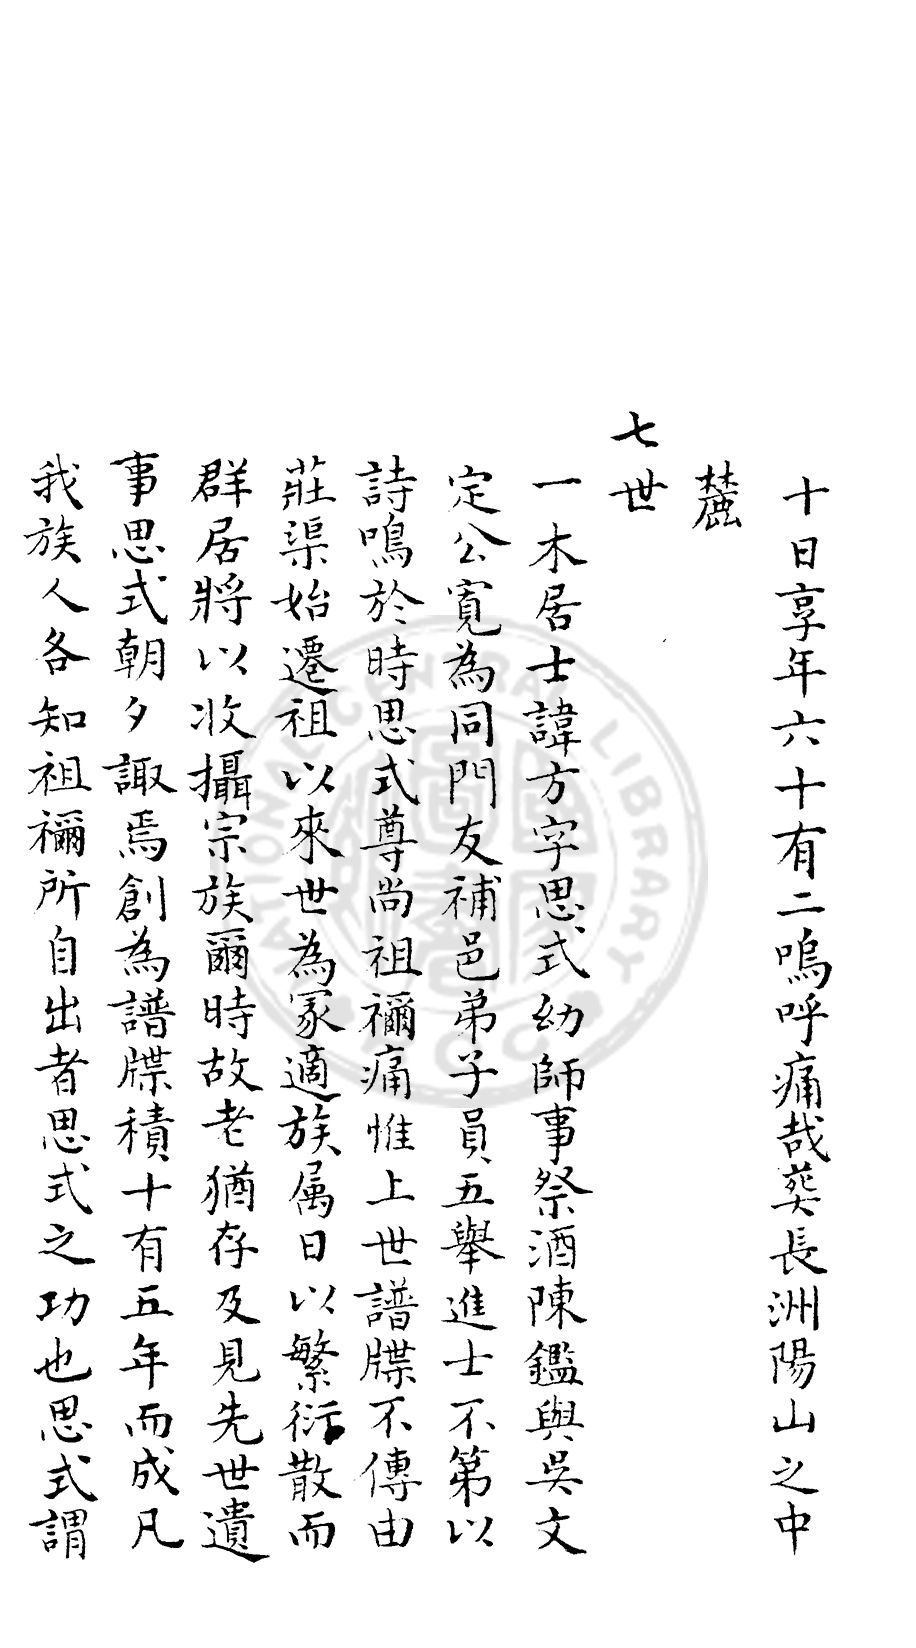 十日享年六十有二嗚呼痛哉葬長洲陽山之中
麓
七世
一木居士諱方字思式幼師事祭酒陳鑑與吳文
定公寬為同門友補邑弟子員五舉進士不第以
詩鳴於時思式尊尚祖禰痛惟上世譜牒不傳由
莊渠始遷祖以來世為冢適族属日以繁衍散而
群居將以收攝宗族爾時故老猶存及見先世遺
事思式朝夕諏焉創為譜牒積十有五年而成凡
我族人各知祖禰所自出者思式之功也思式謂
NATIONAL CENTRAL LIBRARY